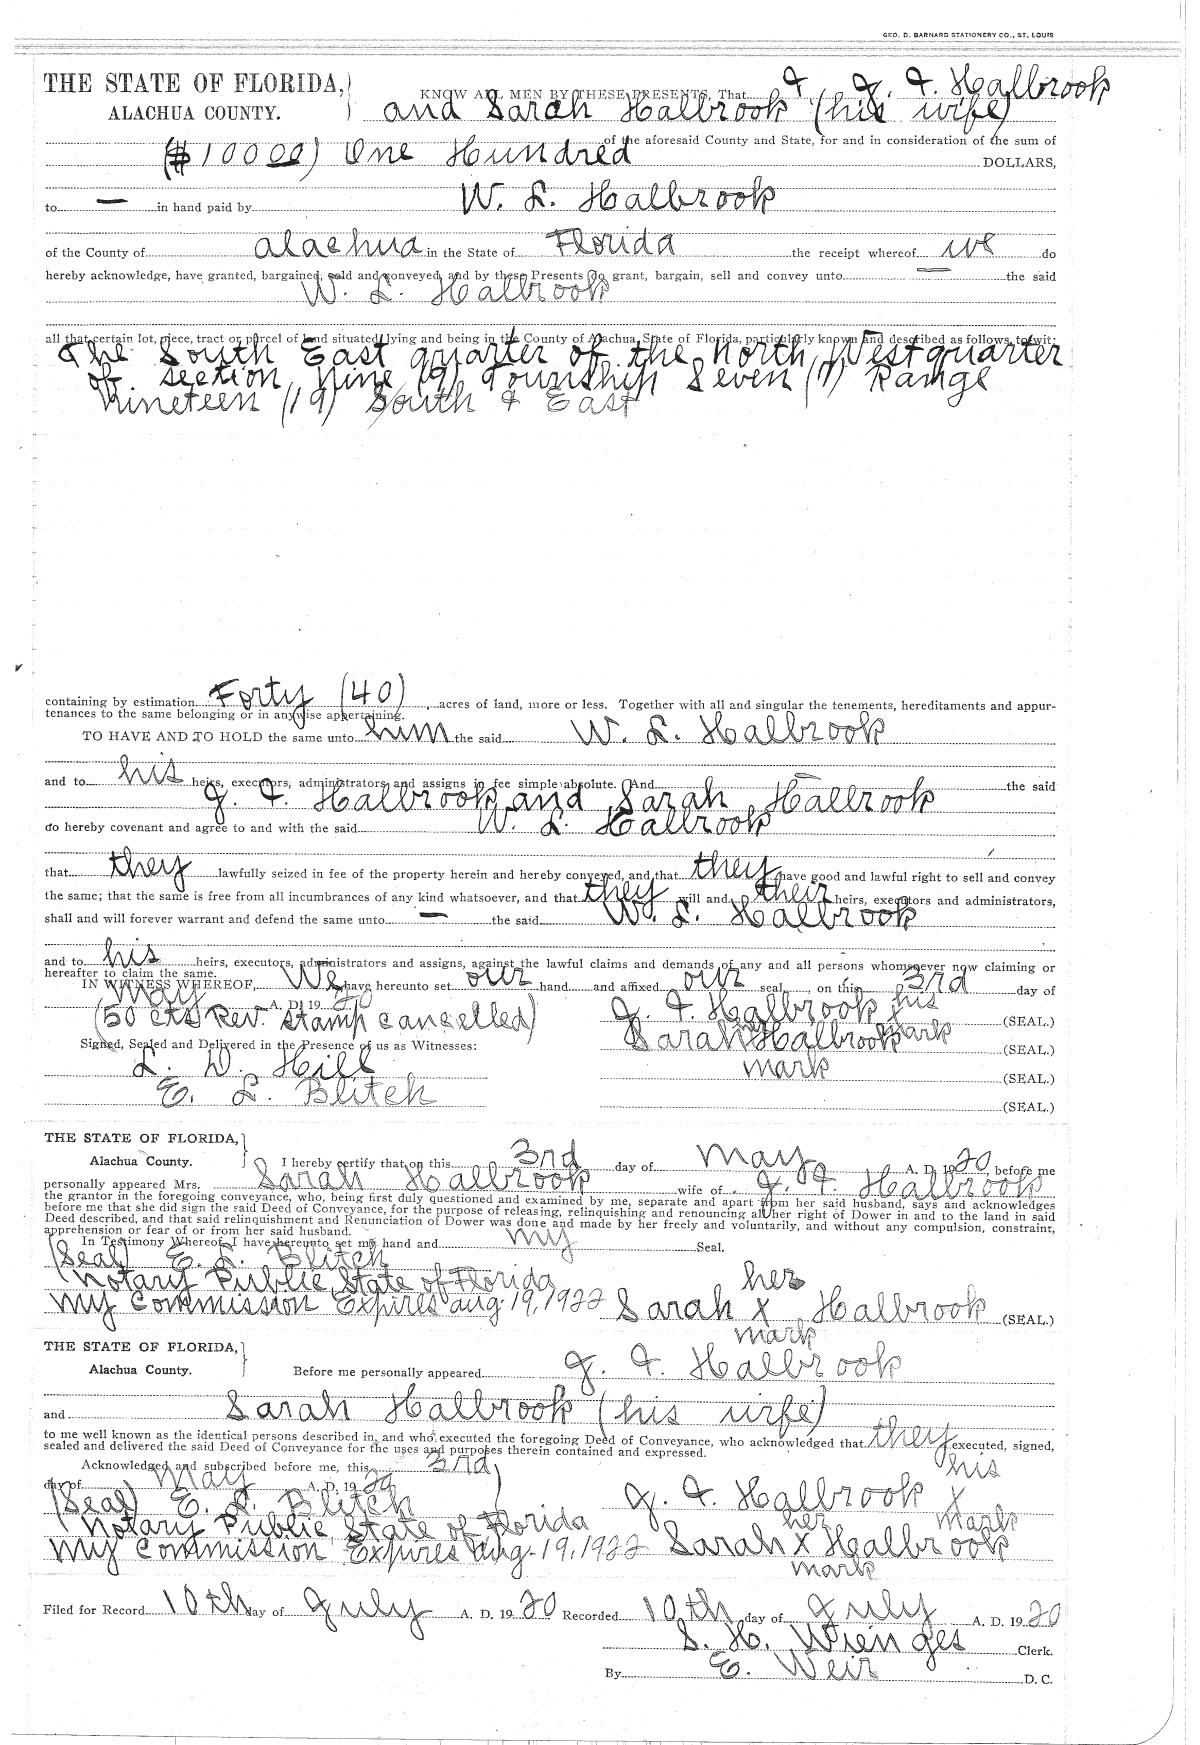 GEO. D. BARNARD STATIONERY CO., ST. LOUIS
THE STATE OF FLORIDA,
ALACHUA COUNTY.
KNOW ALL MEN BY THESE PRESENTS, That J. F. Halbrook
and Sarah Halbrook (his wife)
of the aforesaid County and State, for and in consideration of the sum of
($100 00) One Hundred DOLLARS,
to — in hand paid by W. L. Halbrook
of the County of Alachua in the State of Florida the receipt whereof we do
hereby acknowledge, have granted, bargained, sold and conveyed, and by these Presents do grant, bargain, sell and convey unto — the said
W. L. Halbrook
all that certain lot, piece, tract or parcel of land situated, lying and being in the County of Alachua, State of Florida, particularly known and described as follows, to-wit:
The South East quarter of the North West quarter
of section Nine (9) Township Seven (7) Range
Nineteen (19) South & East
containing by estimation Forty (40) acres of land, more or less. Together with all and singular the tenements, hereditaments and appur-
tenances to the same belonging or in anywise appertaining.
TO HAVE AND TO HOLD the same unto him the said W. L. Halbrook
and to his heirs, executors, administrators and assigns in fee simple absolute. And — the said
J. F. Halbrook and Sarah Halbrook
do hereby covenant and agree to and with the said W. L. Halbrook
that they lawfully seized in fee of the property herein and hereby conveyed, and that they have good and lawful right to sell and convey
the same; that the same is free from all incumbrances of any kind whatsoever, and that they will and their heirs, executors and administrators,
shall and will forever warrant and defend the same unto — the said W. L. Halbrook
and to his heirs, executors, administrators and assigns, against the lawful claims and demands of any and all persons whomsoever now claiming or
hereafter to claim the same.
IN WITNESS WHEREOF, We have hereunto set our hand and affixed our seal, on this 3rd day of
May A. D. 19 20
(50 cts Rev. Stamp cancelled) J. F. Halbrook his (SEAL.)
Signed, Sealed and Delivered in the Presence of us as Witnesses: Sarah her Halbrook mark (SEAL.)
L. W. Hill mark (SEAL.)
E. L. Blitch (SEAL.)
THE STATE OF FLORIDA,
Alachua County.
I hereby certify that on this 3rd day of May A. D. 19 20, before me
personally appeared Mrs. Sarah Halbrook wife of J. F. Halbrook
the grantor in the foregoing conveyance, who, being first duly questioned and examined by me, separate and apart from her said husband, says and acknowledges
before me that she did sign the said Deed of Conveyance, for the purpose of releasing, relinquishing and renouncing all her right of Dower in and to the land in said
Deed described, and that said relinquishment and Renunciation of Dower was done and made by her freely and voluntarily, and without any compulsion, constraint,
apprehension or fear of or from her said husband.
In Testimony Whereof, I have hereunto set my hand and my Seal.
(Seal) E. L. Blitch
Notary Public State of Florida her
My Commission Expires Aug. 19, 1922 Sarah X Halbrook (SEAL.)
mark
THE STATE OF FLORIDA,
Alachua County.
Before me personally appeared J. F. Halbrook
and Sarah Halbrook (his wife)
to me well known as the identical persons described in, and who executed the foregoing Deed of Conveyance, who acknowledged that they executed, signed,
sealed and delivered the said Deed of Conveyance for the uses and purposes therein contained and expressed.
Acknowledged and subscribed before me, this 3rd his
day of May A. D. 19 20
(Seal) E. L. Blitch J. F. Halbrook X
Notary Public State of Florida her mark
My Commission Expires Aug. 19, 1922 Sarah X Halbrook
mark
Filed for Record 10th day of July A. D. 19 20 Recorded 10th day of July A. D. 19 20
S. H. Wienges Clerk.
By E. Weir D. C.